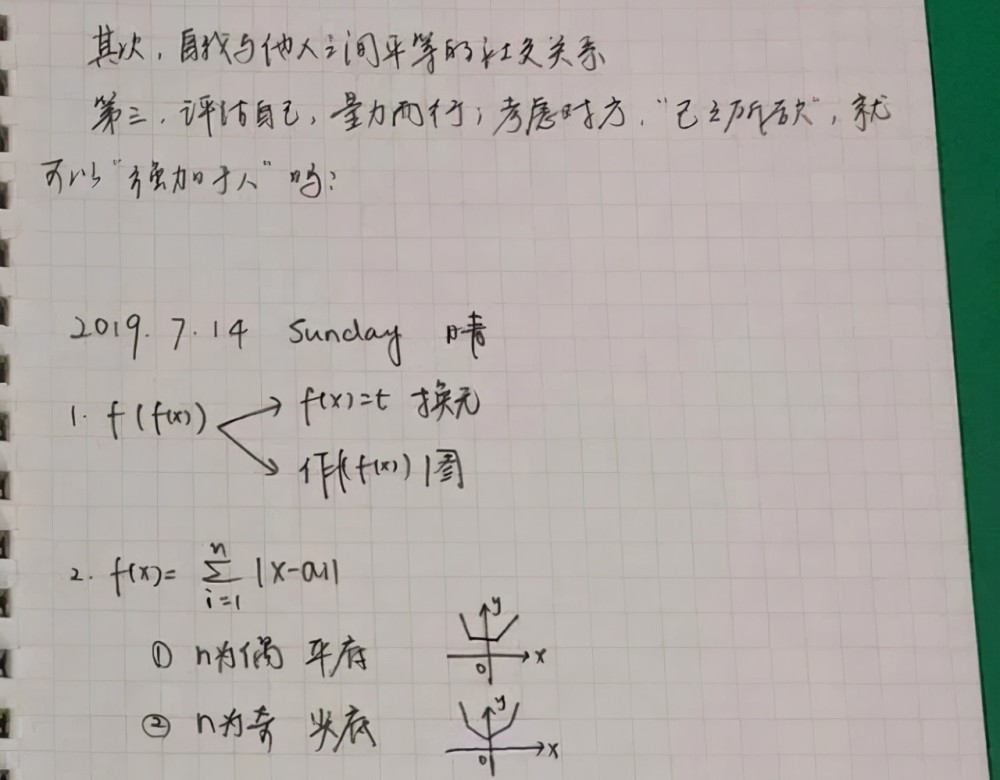 其次，自我与他人之间平等的社交关系
第三，评估自己，量力而行；考虑对方，“己之所欲”，就
可以“强加于人”吗？
2019.7.14 Sunday 晴
1. f(f(x))
f(x)=t 换元
作f(f(x))图
2. f(x)= ∑_{i=1}^{n} |x-ai|
① n为偶 平底
y
0 x
② n为奇 尖底
y
0 x